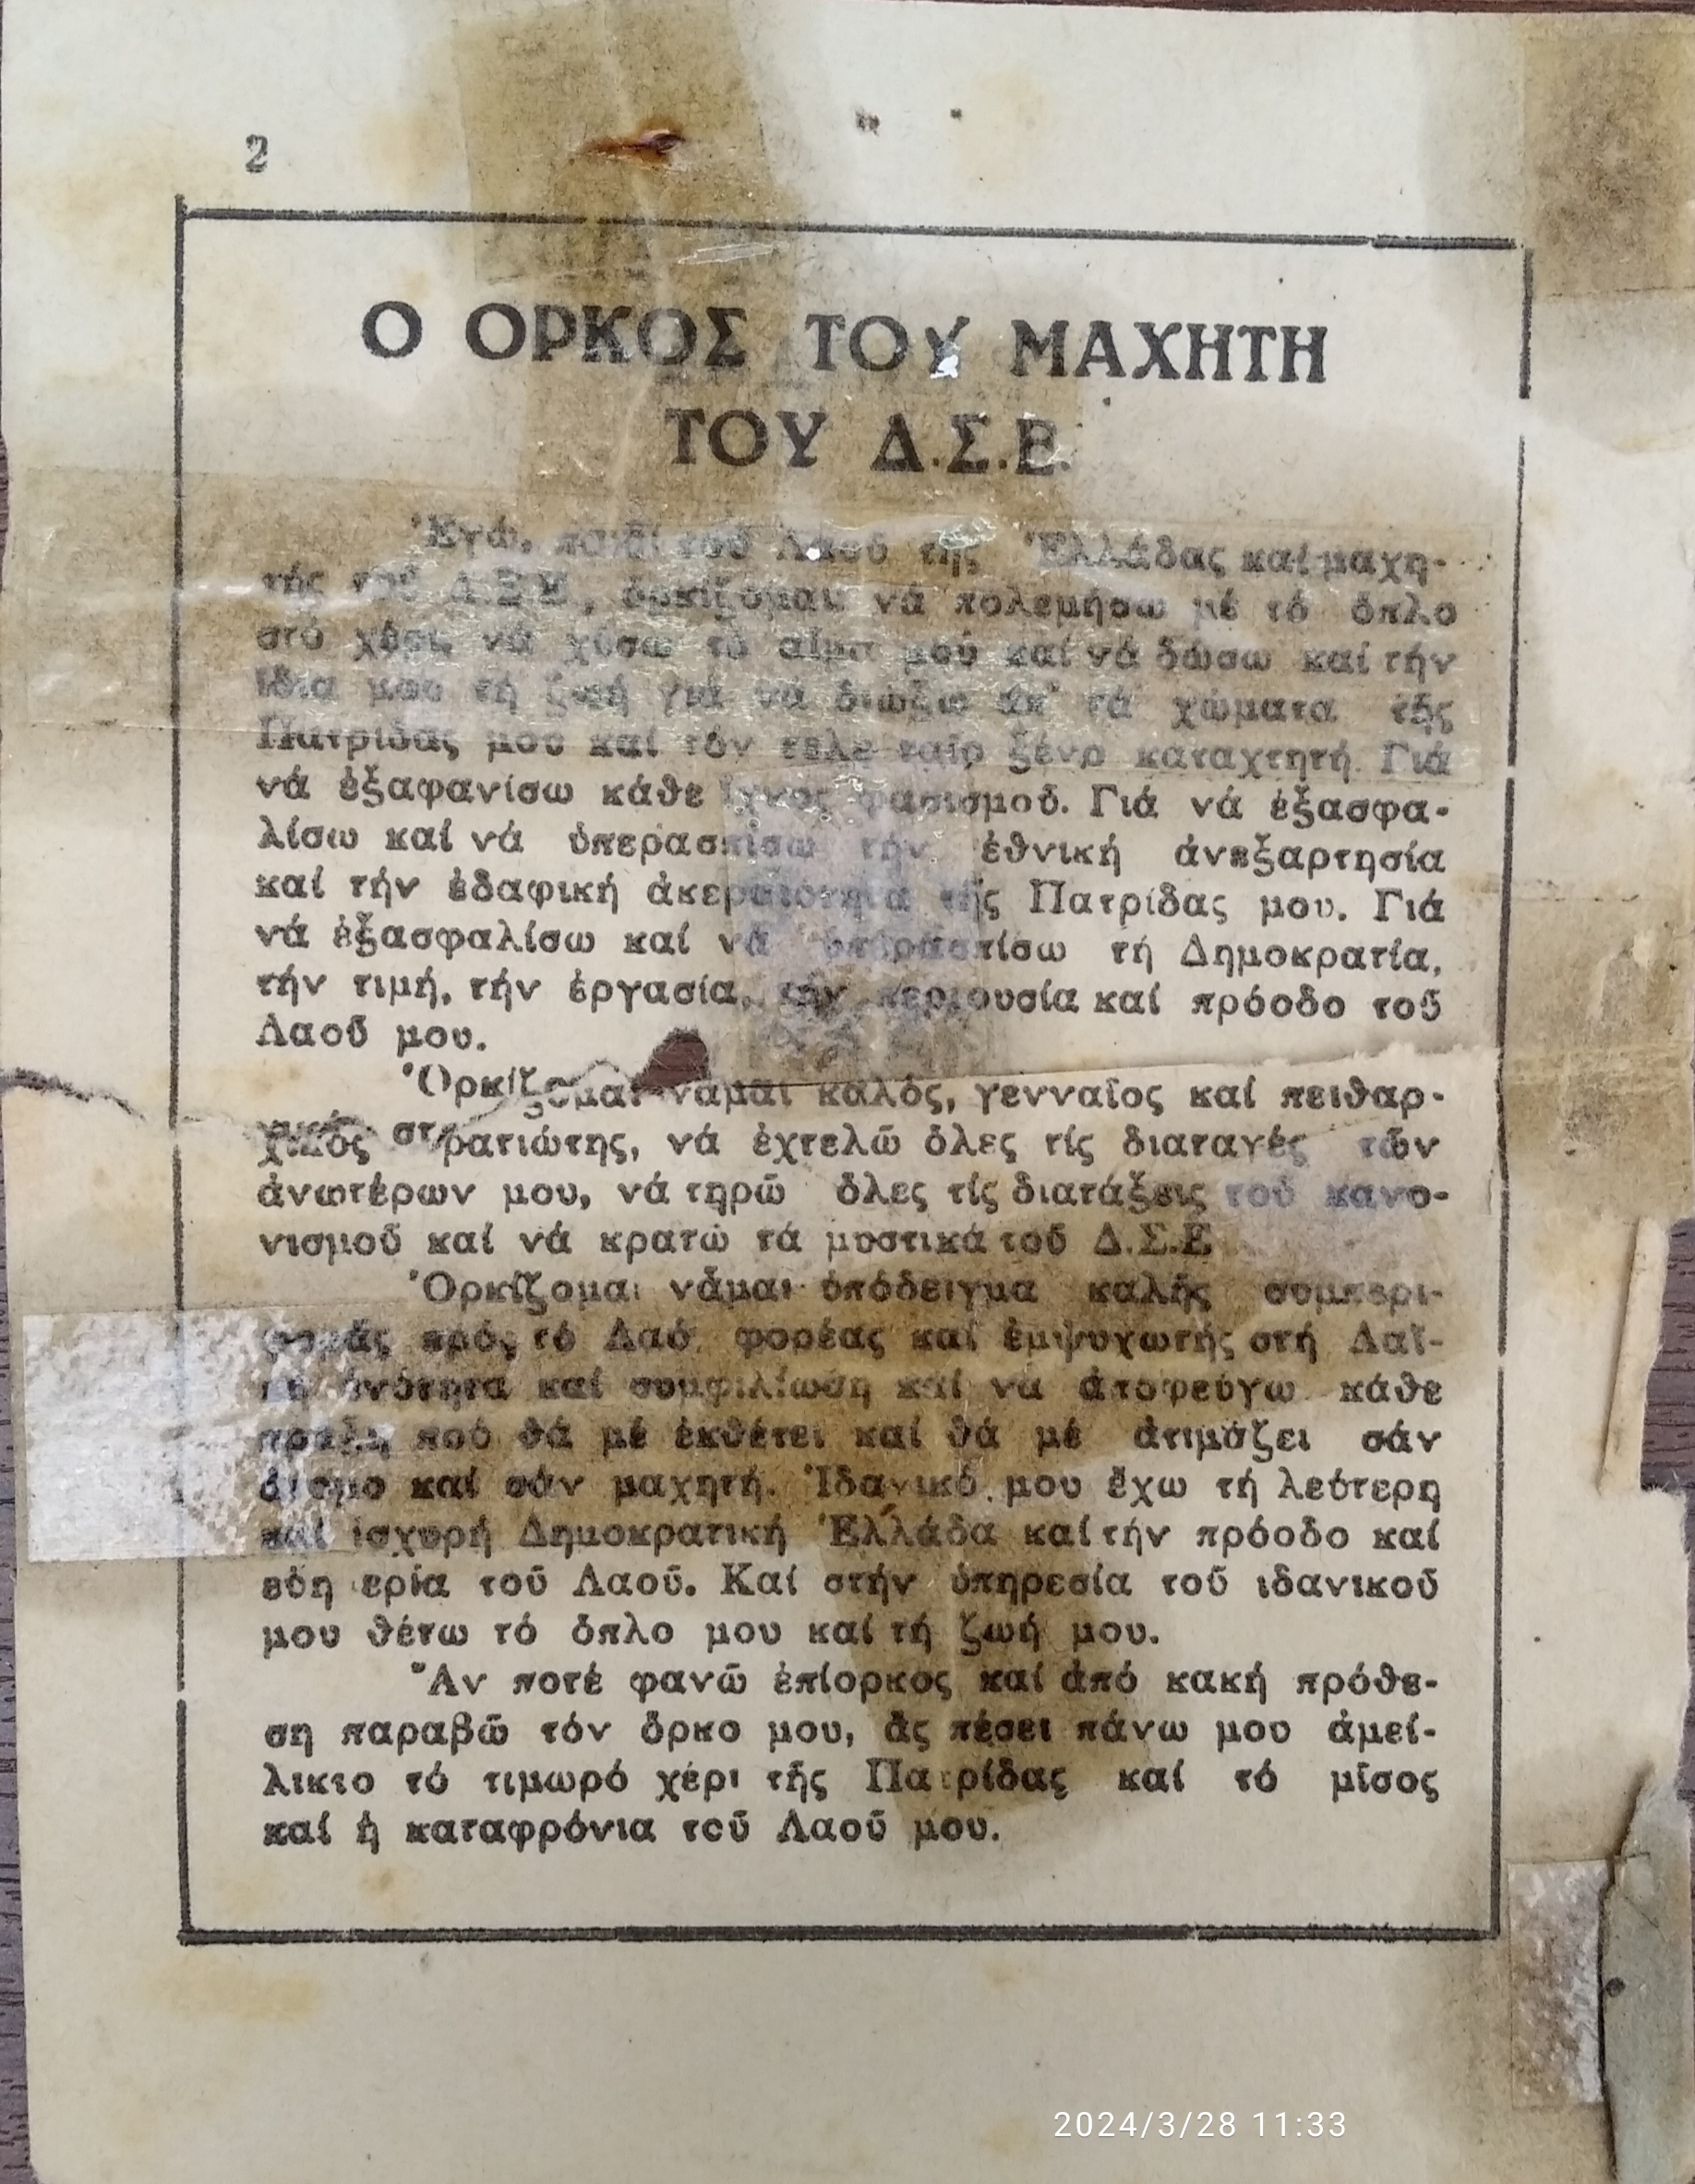 2
Ο ΟΡΚΟΣ ΤΟΥ ΜΑΧΗΤΗ
ΤΟΥ Δ.Σ.Ε.
Ἐγώ, παιδί τοῦ Λαοῦ τῆς Ἑλλάδας καί μαχη-
τής τοῦ Δ.Σ.Ε, ὁρκίζομαι νά πολεμήσω μέ τό ὅπλο
στό χέρι, νά χύσω τό αἷμα μου καί νά δώσω καί τήν
ἴδια μου τή ζωή γιά νά διώξω ἀπ' τά χώματα τῆς
Πατρίδας μου καί τόν τελευταῖο ξένο καταχτητή. Γιά
νά ἐξαφανίσω κάθε ἴχνος φασισμοῦ. Γιά νά ἐξασφα-
λίσω καί νά ὑπερασπίσω τήν ἐθνική ἀνεξαρτησία
καί τήν ἐδαφική ἀκεραιότητα τῆς Πατρίδας μου. Γιά
νά ἐξασφαλίσω καί νά ὑπερασπίσω τή Δημοκρατία,
τήν τιμή, τήν ἐργασία, τήν περιουσία καί πρόοδο τοῦ
Λαοῦ μου.
Ὁρκίζομαι νἆμαι καλός, γενναῖος καί πειθαρ-
χικός στρατιώτης, νά ἐχτελῶ ὅλες τίς διαταγές τῶν
ἀνωτέρων μου, νά τηρῶ ὅλες τίς διατάξεις τοῦ κανο-
νισμοῦ καί νά κρατῶ τά μυστικά τοῦ Δ.Σ.Ε
Ὁρκίζομαι νἆμαι ὑπόδειγμα καλῆς συμπερι-
φορᾶς πρός τό Λαό, φορέας καί ἐμψυχωτής στή Λαϊ-
κή ἑνότητα καί συμφιλίωση καί νά ἀποφεύγω κάθε
πράξη πού θά μέ ἐκθέτει καί θά μέ ἀτιμάζει σάν
ἄτομο καί σάν μαχητή. Ἰδανικό μου ἔχω τή λεύτερη
καί ἰσχυρή Δημοκρατική Ἑλλάδα καί τήν πρόοδο καί
εὐημερία τοῦ Λαοῦ. Καί στήν ὑπηρεσία τοῦ ιδανικοῦ
μου θέτω τό ὅπλο μου καί τή ζωή μου.
Ἄν ποτέ φανῶ ἐπίορκος καί ἀπό κακή πρόθε-
ση παραβῶ τόν ὅρκο μου, ἄς πέσει πάνω μου ἀμεί-
λικτο τό τιμωρό χέρι τῆς Πατρίδας καί τό μῖσος
καί ἡ καταφρόνια τοῦ Λαοῦ μου.
2024/3/28 11:33